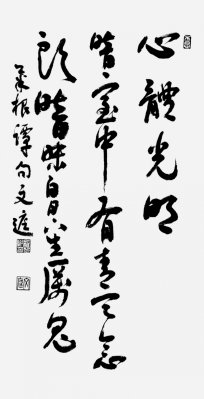 心體光明
暗室中有青天念
頭暗昧白日下生厲鬼
菜根譚句文